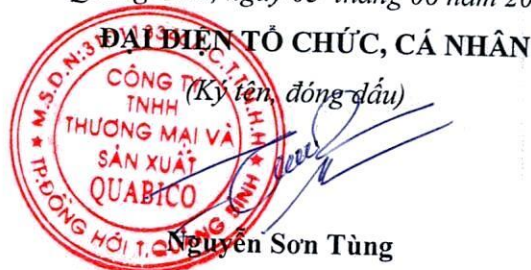 tháng 06 năm 20
ĐẠI DIỆN TỔ CHỨC, CÁ NHÂN
(Ký tên, đóng dấu)
CÔNG TY
TNHH
THƯƠNG MẠI VÀ
SẢN XUẤT
QUABICO
M.S.D.N:
TP.ĐỒNG HỚI T.QUẢNG BÌNH
Nguyễn Sơn Tùng